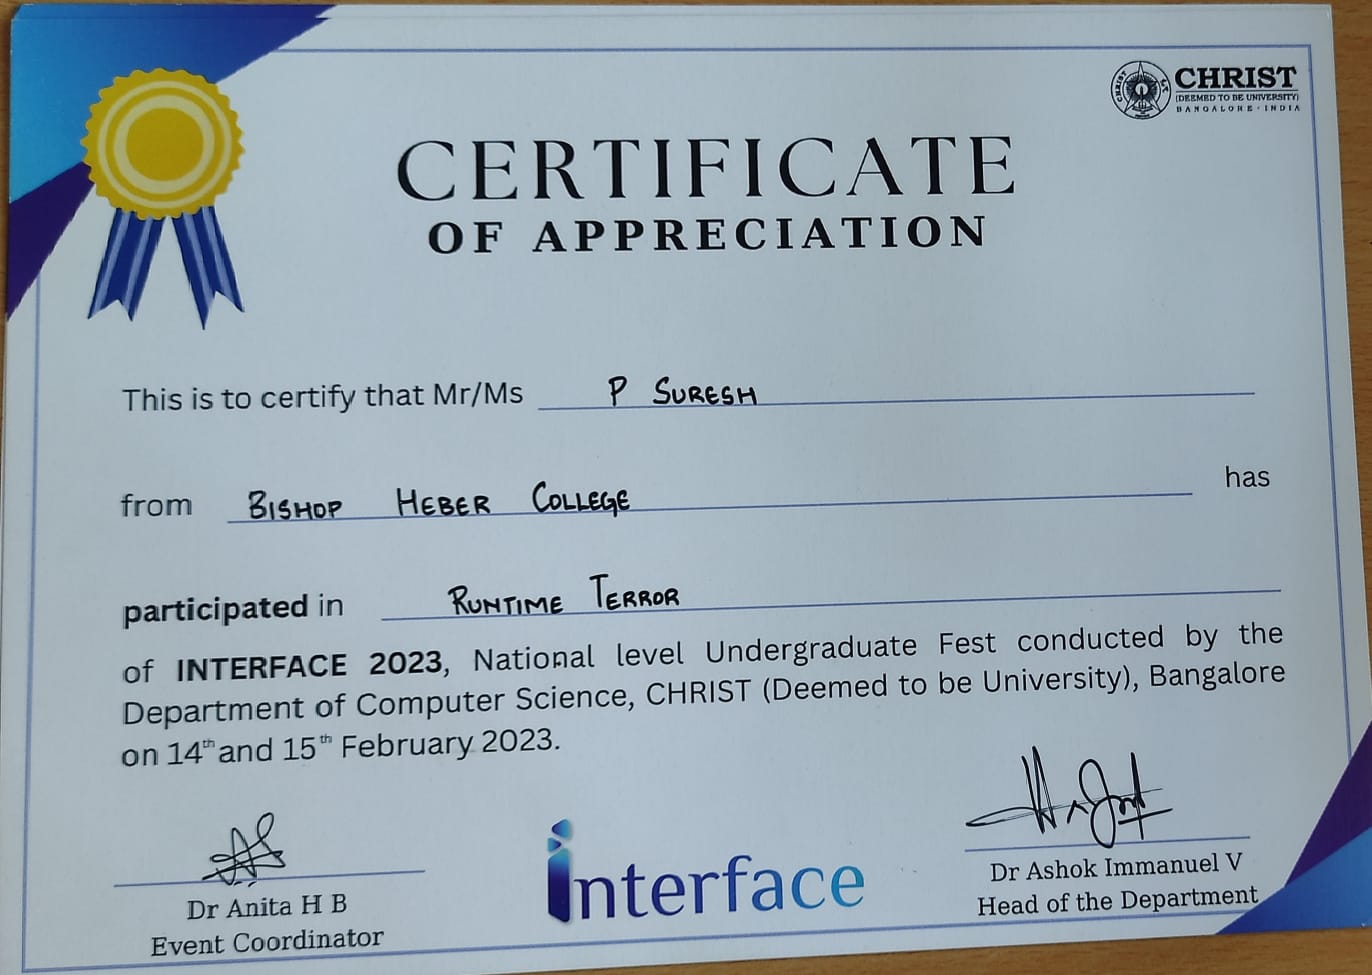 CHRIST
(DEEMED TO BE UNIVERSITY)
BANGALORE · INDIA
CERTIFICATE
OF APPRECIATION
This is to certify that Mr/Ms P SURESH
from BISHOP HEBER COLLEGE has
participated in RUNTIME TERROR
of INTERFACE 2023, National level Undergraduate Fest conducted by the
Department of Computer Science, CHRIST (Deemed to be University), Bangalore
on 14th and 15th February 2023.
Dr Anita H B
Event Coordinator
interface
Dr Ashok Immanuel V
Head of the Department